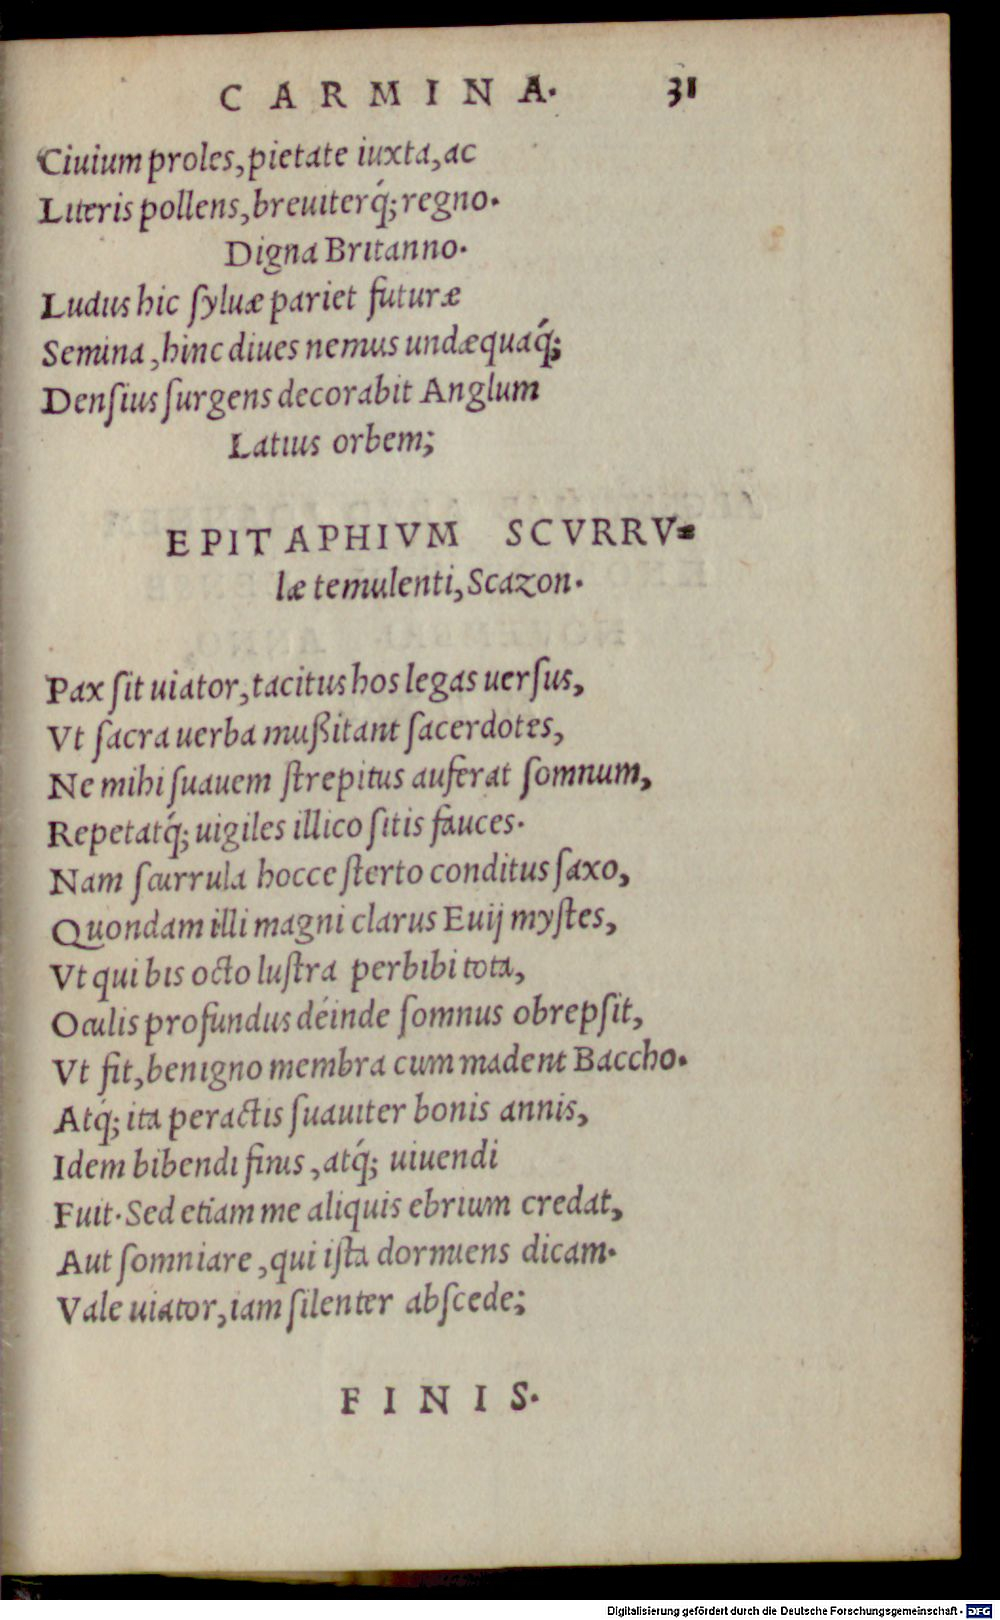 CARMINA. 31
Ciuium proles, pietate iuxta, ac
Literis pollens, breuiterq́; regno.
Digna Britanno.
Ludus hic ſyluæ pariet futuræ
Semina, hinc diues nemus undæquaq́;
Denſius ſurgens decorabit Anglum
Latius orbem;
EPITAPHIVM SCVRRV=
læ temulenti, Scazon.
Pax ſit uiator, tacitus hos legas uerſus,
Vt ſacra uerba mußitant ſacerdotes,
Ne mihi ſuauem ſtrepitus auferat ſomnum,
Repetatq́; uigiles illico ſitis fauces.
Nam ſcurrula hocce ſterto conditus ſaxo,
Quondam illi magni clarus Euij myſtes,
Vt qui bis octo luſtra perbibi tota,
Oculis profundus déinde ſomnus obrepſit,
Vt fit, benigno membra cum madent Baccho.
Atq́; ita peractis ſuauiter bonis annis,
Idem bibendi finis, atq́; uiuendi
Fuit. Sed etiam me aliquis ebrium credat,
Aut ſomniare, qui iſta dormiens dicam.
Vale uiator, iam ſilenter abſcede;
FINIS.
Digitalisierung gefördert durch die Deutsche Forschungsgemeinschaft - DFG